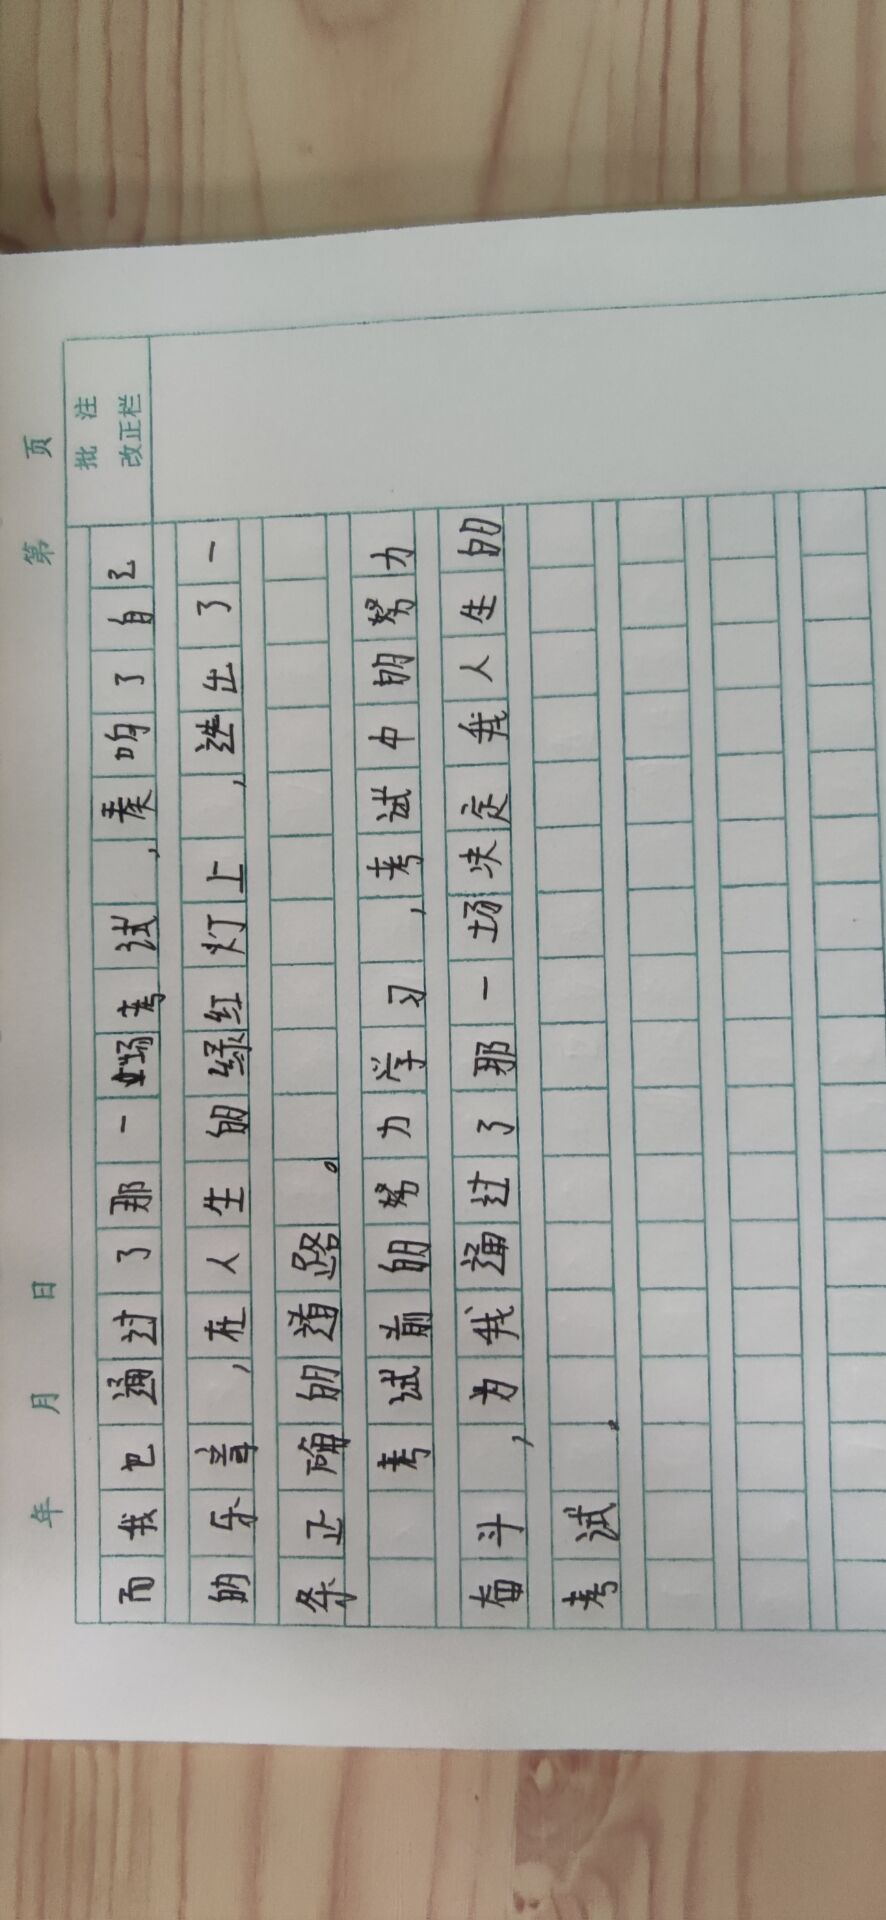 年 月 日 第 页
批 注
改正栏
而我也通过了那一场考试,奏响了自己
的乐章,在人生的绿红灯上,选出了一
条正确的道路。
考试前的努力学习,考试中的努力
奋斗,为我通过了那一场决定我人生的
考试.